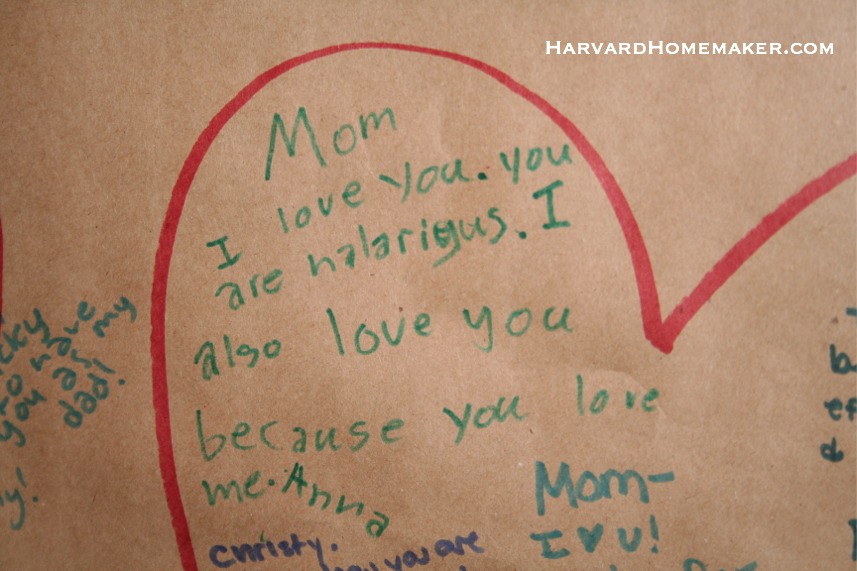 HarvardHomemaker.com
Mom
I love you. you
are halarigus. I
also love you
because you love
me. Anna
Mom-
I ♥ u!
Christy.
you are
have
you as my
dad!